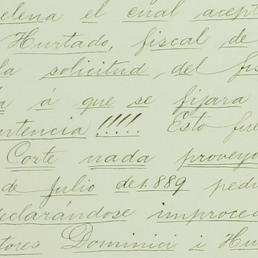 elena el cual acept
Hurtado, fiscal de
la solicitud del fis
a á que se fijara
ntencia !!!!! Esto fue
Corte nada proveyo
de julio de 1.889 pedi
eclarándose improce
tores Dominici i Hu